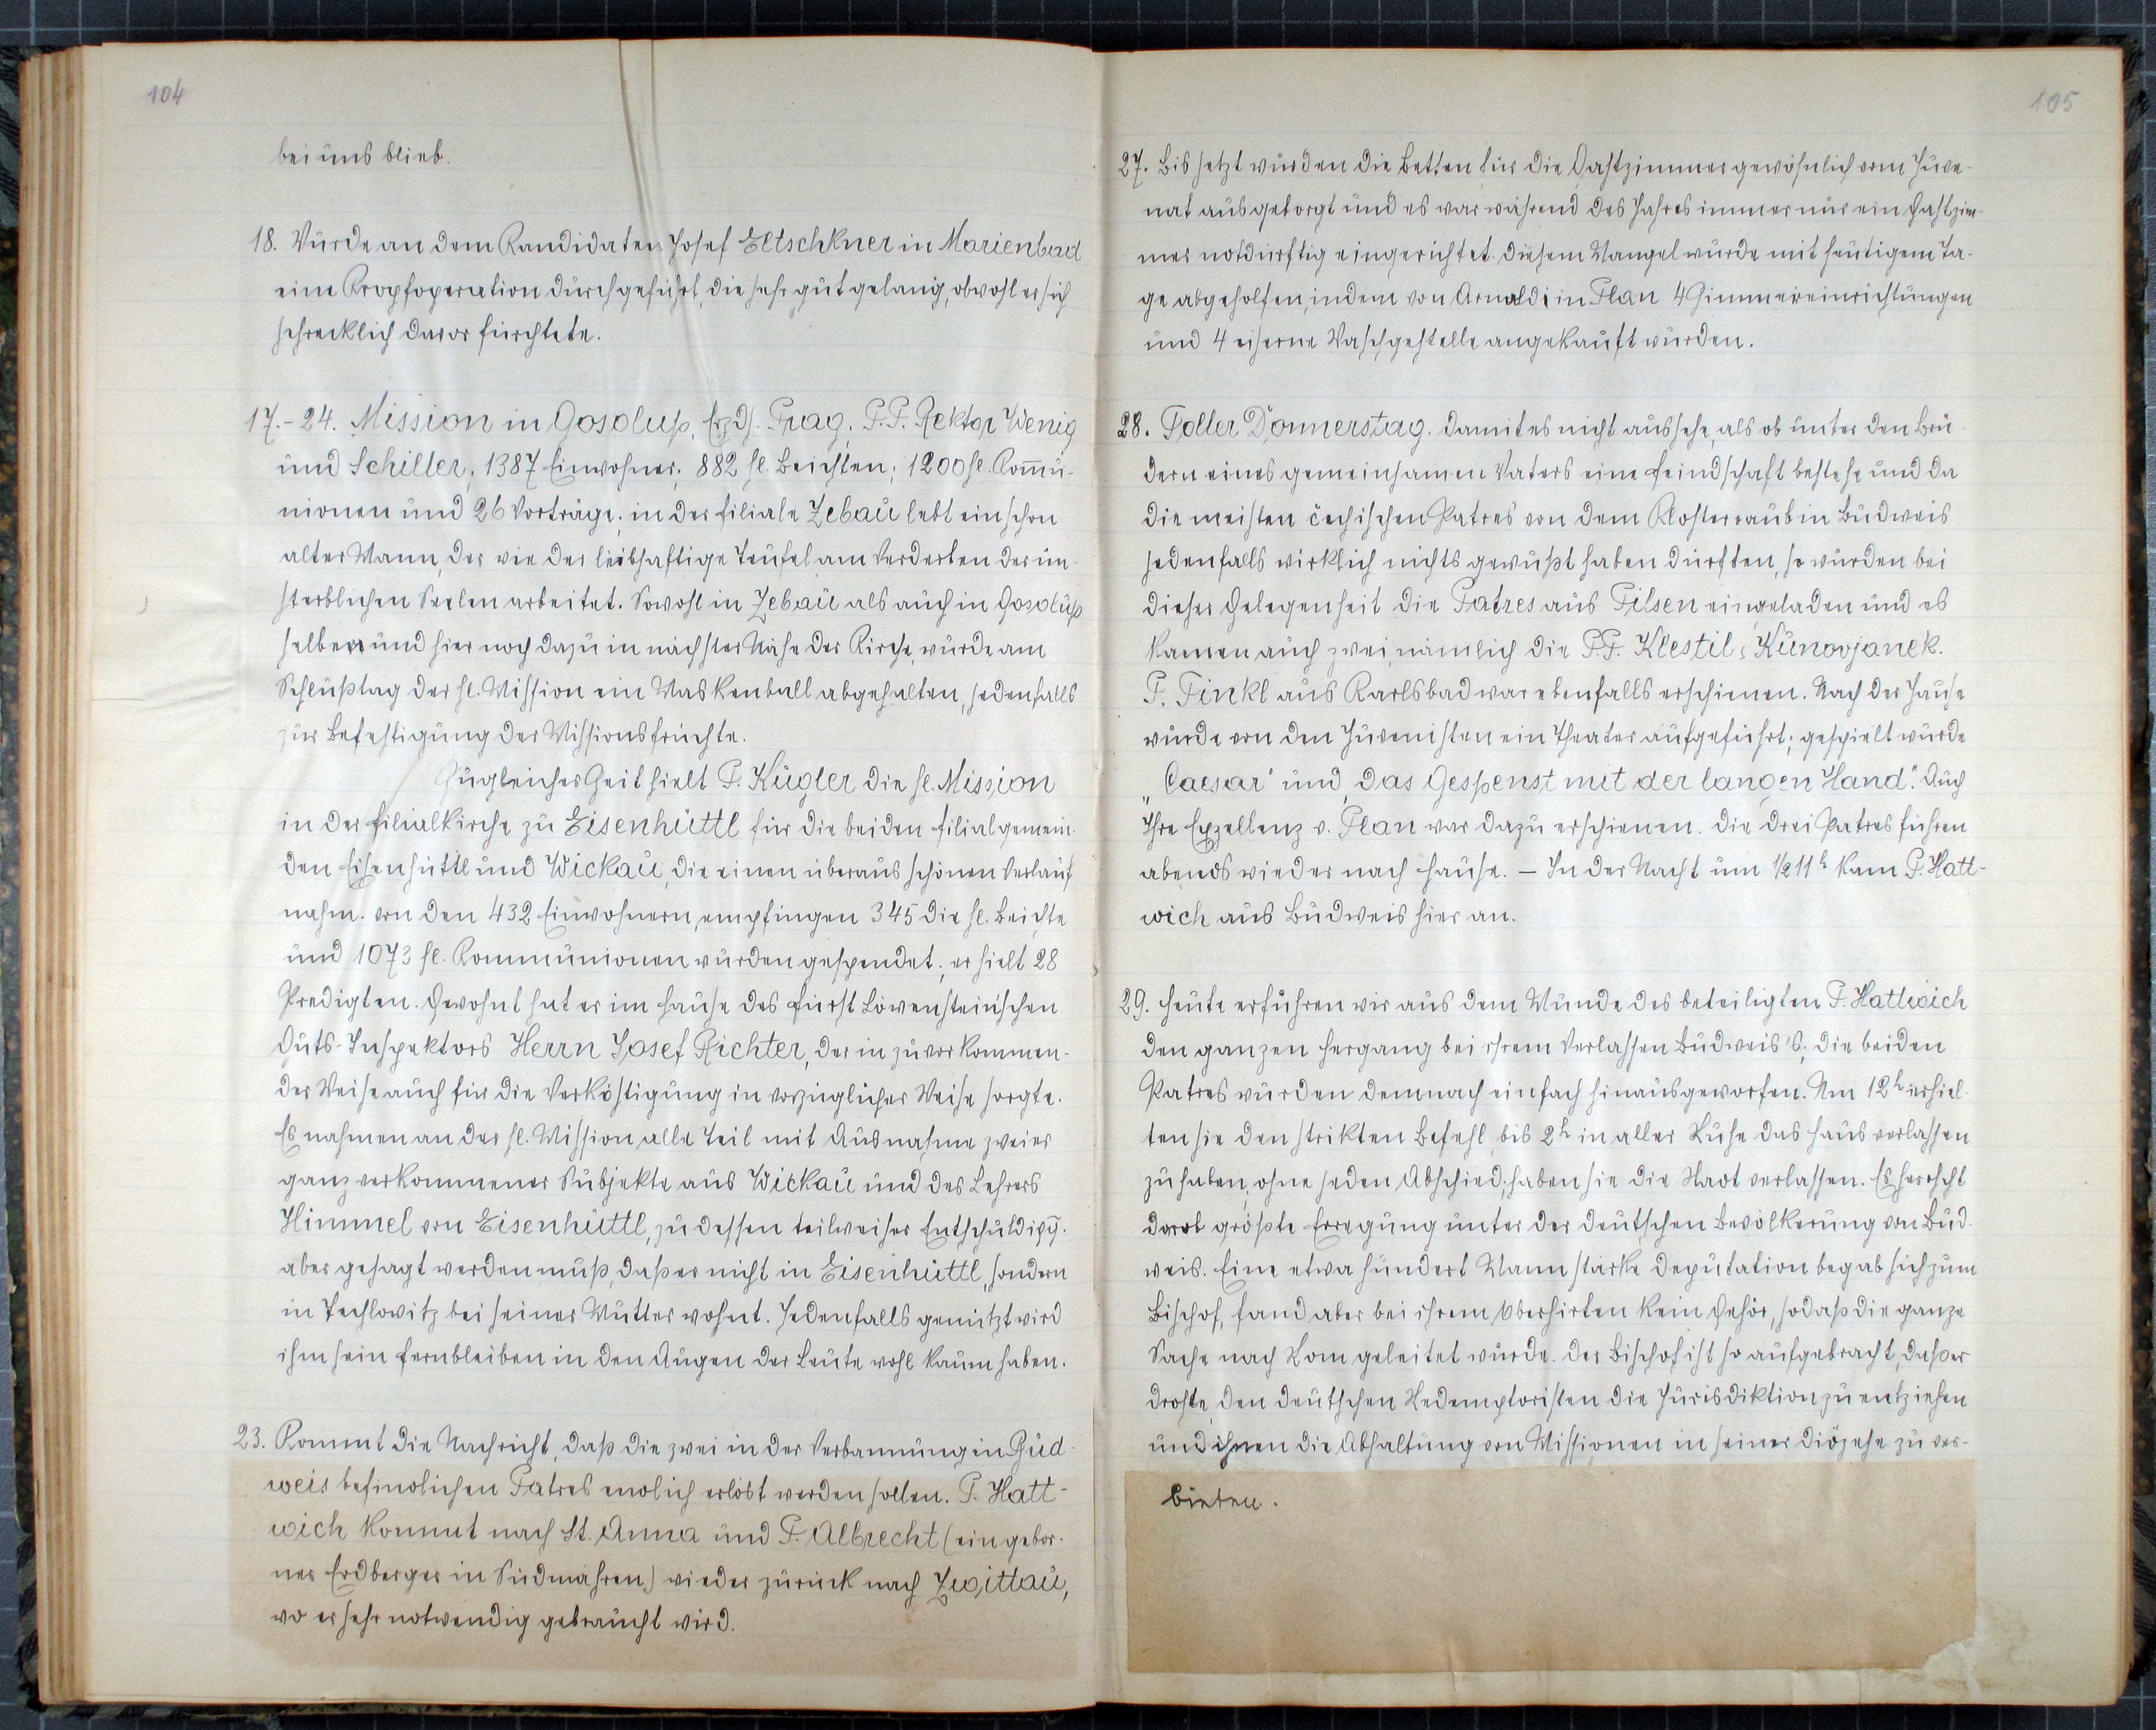 104
bei uns blieb.
18. Wurde an dem Kandidaten Josef Eltschkner in Marienbad
eine Kropfoperation durchgeführt, die sehr gut gelang, obwohl er sich
schrecklich davor fürchtete.
17.-24. Mission in Gosolup, Erzd. Prag, P.P. Rektor Wenig
und Schiller; 1387 Einwohner; 882 hl. Beichten; 1200 hl. Kom̅u-
nionen und 26 Vorträge; in der Filiale Zebau lebt ein schon
alter Mann, der wie der leibhaftige Teufel am Verderben der un-
sterblichen Seelen arbeitet. Sowohl in Zebau als auch in Gosolup
selber und hier noch dazu in nächster Nähe der Kirche, wurde am
Schlußtag der hl. Mission ein Maskenball abgehalten, jedenfalls
zur Befestigung der Missionsfrüchte.
Zu gleicher Zeit hielt P. Kugler die hl. Mission
in der Filialkirche zu Eisenhüttl für die beiden Filialgemein-
den Eisenhüttl und Wickau, die einen überaus schönen Verlauf
nahm. Von den 432 Einwohnern, empfingen 345 die hl. Beichte
und 1073 hl. Kommunionen wurden gespendet; er hielt 28
Predigten. Gewohnt hat er im Hause des Fürst Löwenstein'schen
Guts-Inspektors Herrn Josef Richter, der in zuvorkommen-
der Weise auch für die Verköstigung in vorzüglicher Weise sorgte.
Es nahmen an der hl. Mission alle Teil mit Ausnahme zweier
ganz verkommener Subjekte aus Wickau und des Lehrers
Himmel von Eisenhüttl, zu dessen teilweiser Entschuldigg.
aber gesagt werden muß, daß er nicht in Eisenhüttl, sondern
in Techlowitz bei seiner Mutter wohnt. Jedenfalls genützt wird
ihm sein Fernbleiben in den Augen der Leute wohl kaum haben.
23. Kommt die Nachricht, daß die zwei in der Verbannung in Bud-
weis befindlichen Patres endlich erlöst werden sollen. P. Hatt-
wich kommt nach St. Anna und P. Albrecht (ein gebor-
ner Erdberger in Südmähren) wieder zurück nach Zwittau,
wo er sehr notwendig gebraucht wird.
105
27. Bis jetzt wurden die Betten für die Gastzimmer gewöhnlich vom Juve-
nat ausgeborgt und es war während des Jahres immer nur ein Gastzim-
mer notdürftig eingerichtet. Diesem Mangel wurde mit heutigem Ta-
ge abgeholfen, indem von Arnoldi in Plan 4 Zimmereinrichtungen
und 4 eiserne Waschgestelle angekauft wurden.
28. Toller Donnerstag. Damit es nicht aussehe, als ob unter den Brü-
dern eines gemeinsamen Vaters eine Feindschaft bestehe und da
die meisten čechischen Patres von dem Klosterraub in Budweis
jedenfalls wirklich nichts gewußt haben dürften, so wurden bei
dieser Gelegenheit die Patres aus Pilsen eingeladen und es
kamen auch zwei, nämlich die P.P. Klestil, Kunovjanek.
P. Finkl aus Karlsbad war ebenfalls erschienen. Nach der Jause
wurde von den Juvenisten ein Theater aufgeführt; gespielt wurde
„Caesar" und „das Gespenst mit der langen Hand". Auch
Ihre Exzellenz v. Plan war dazu erschienen. Die drei Patres fuhren
abends wieder nach Hause. — In der Nacht um ½11h kam P. Hatt-
wich aus Budweis hier an.
29. Heute erfuhren wir aus dem Munde des beteiligten P. Hattwich
den ganzen Hergang bei ihrem Verlassen Budweis's; die beiden
Patres wurden demnach einfach hinausgeworfen. Um 12h erhiel-
ten sie den strikten Befehl, bis 2h in aller Ruhe das Haus verlassen
zu haben; ohne jeden Abschied haben sie die Stadt verlassen. Es herrscht
darob größte Erregung unter der deutschen Bevölkerung von Bud-
weis. Eine etwa hundert Mann starke Deputation begab sich zum
Bischof, fand aber bei ihrem Oberhirten kein Gehör, sodaß die ganze
Sache nach Rom geleitet wurde. Der Bischof ist so aufgebracht, daß er
drohte, den deutschen Redemptoristen die Jurisdiktion zu entziehen
und ihnen die Abhaltung von Missionen in seiner Diözese zu ver-
bieten.